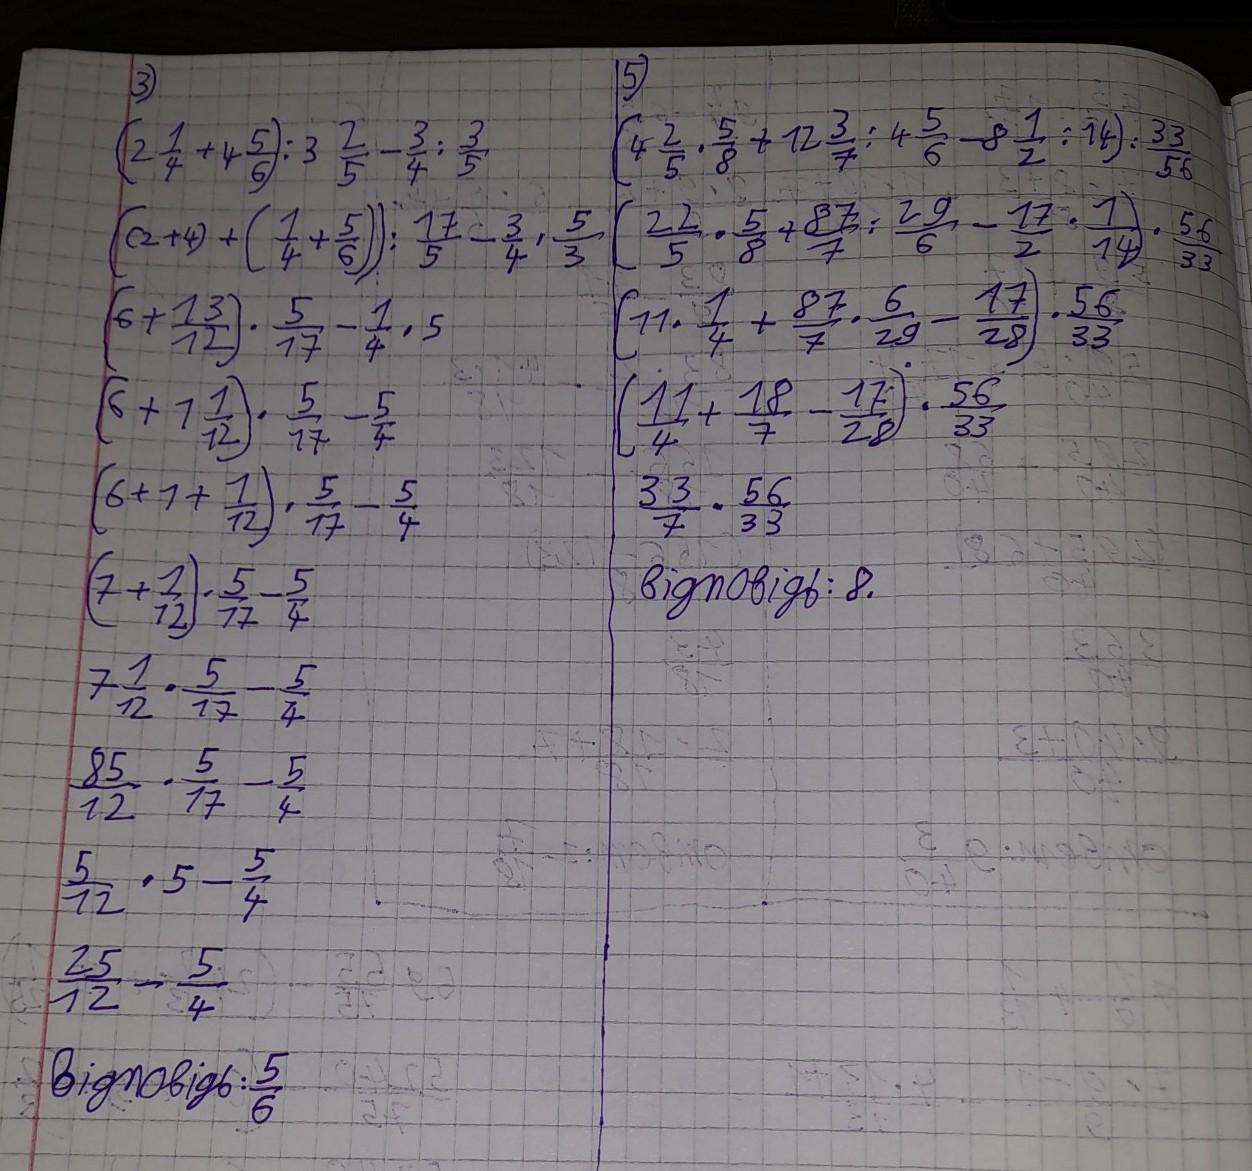 3)
(2 1/4 + 4 5/6) : 3 2/5 - 3/4 : 3/5
((2+4) + (1/4 + 5/6)) : 17/5 - 3/4 · 5/3
(6 + 13/12) · 5/17 - 1/4 · 5
(6 + 1 1/12) · 5/17 - 5/4
(6 + 1 + 1/12) · 5/17 - 5/4
(7 + 1/12) · 5/17 - 5/4
7 1/12 · 5/17 - 5/4
85/12 · 5/17 - 5/4
5/12 · 5 - 5/4
25/12 - 5/4
Відповідь: 5/6
5)
(4 2/5 · 5/8 + 12 3/7 : 4 5/6 - 8 1/2 : 14) : 33/56
(22/5 · 5/8 + 87/7 : 29/6 - 17/2 · 1/14) · 56/33
(11 · 1/4 + 87/7 · 6/29 - 17/28) · 56/33
(11/4 + 18/7 - 17/28) · 56/33
33/7 · 56/33
Відповідь: 8.